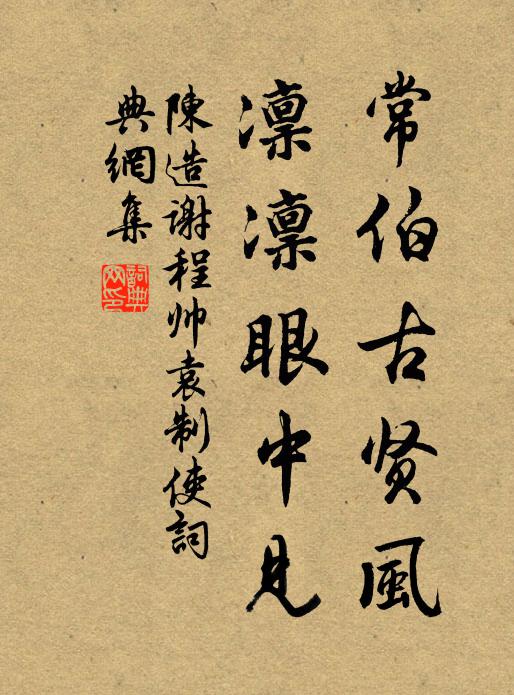 常伯古贤風
凛凛眼中見
陳造谢程帅袁制使詞
典網集
詞典网印